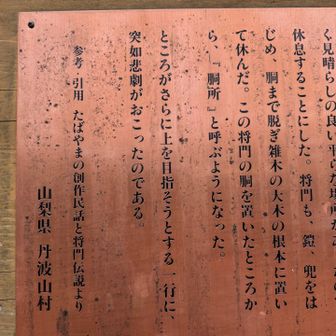 く見晴らしの良い平らな場所が
休息することにした。将門も、鎧、兜をは
じめ、胴まで脱ぎ雑木の大木の根本に置い
て休んだ。この将門の胴を置いたところか
ら、『胴所』と呼ぶようになった。
ところがさらに上を目指そうとする一行に、
突如悲劇がおこったのである。
参考 引用 たばやまの創作民話と将門伝説より
山梨県 丹波山村